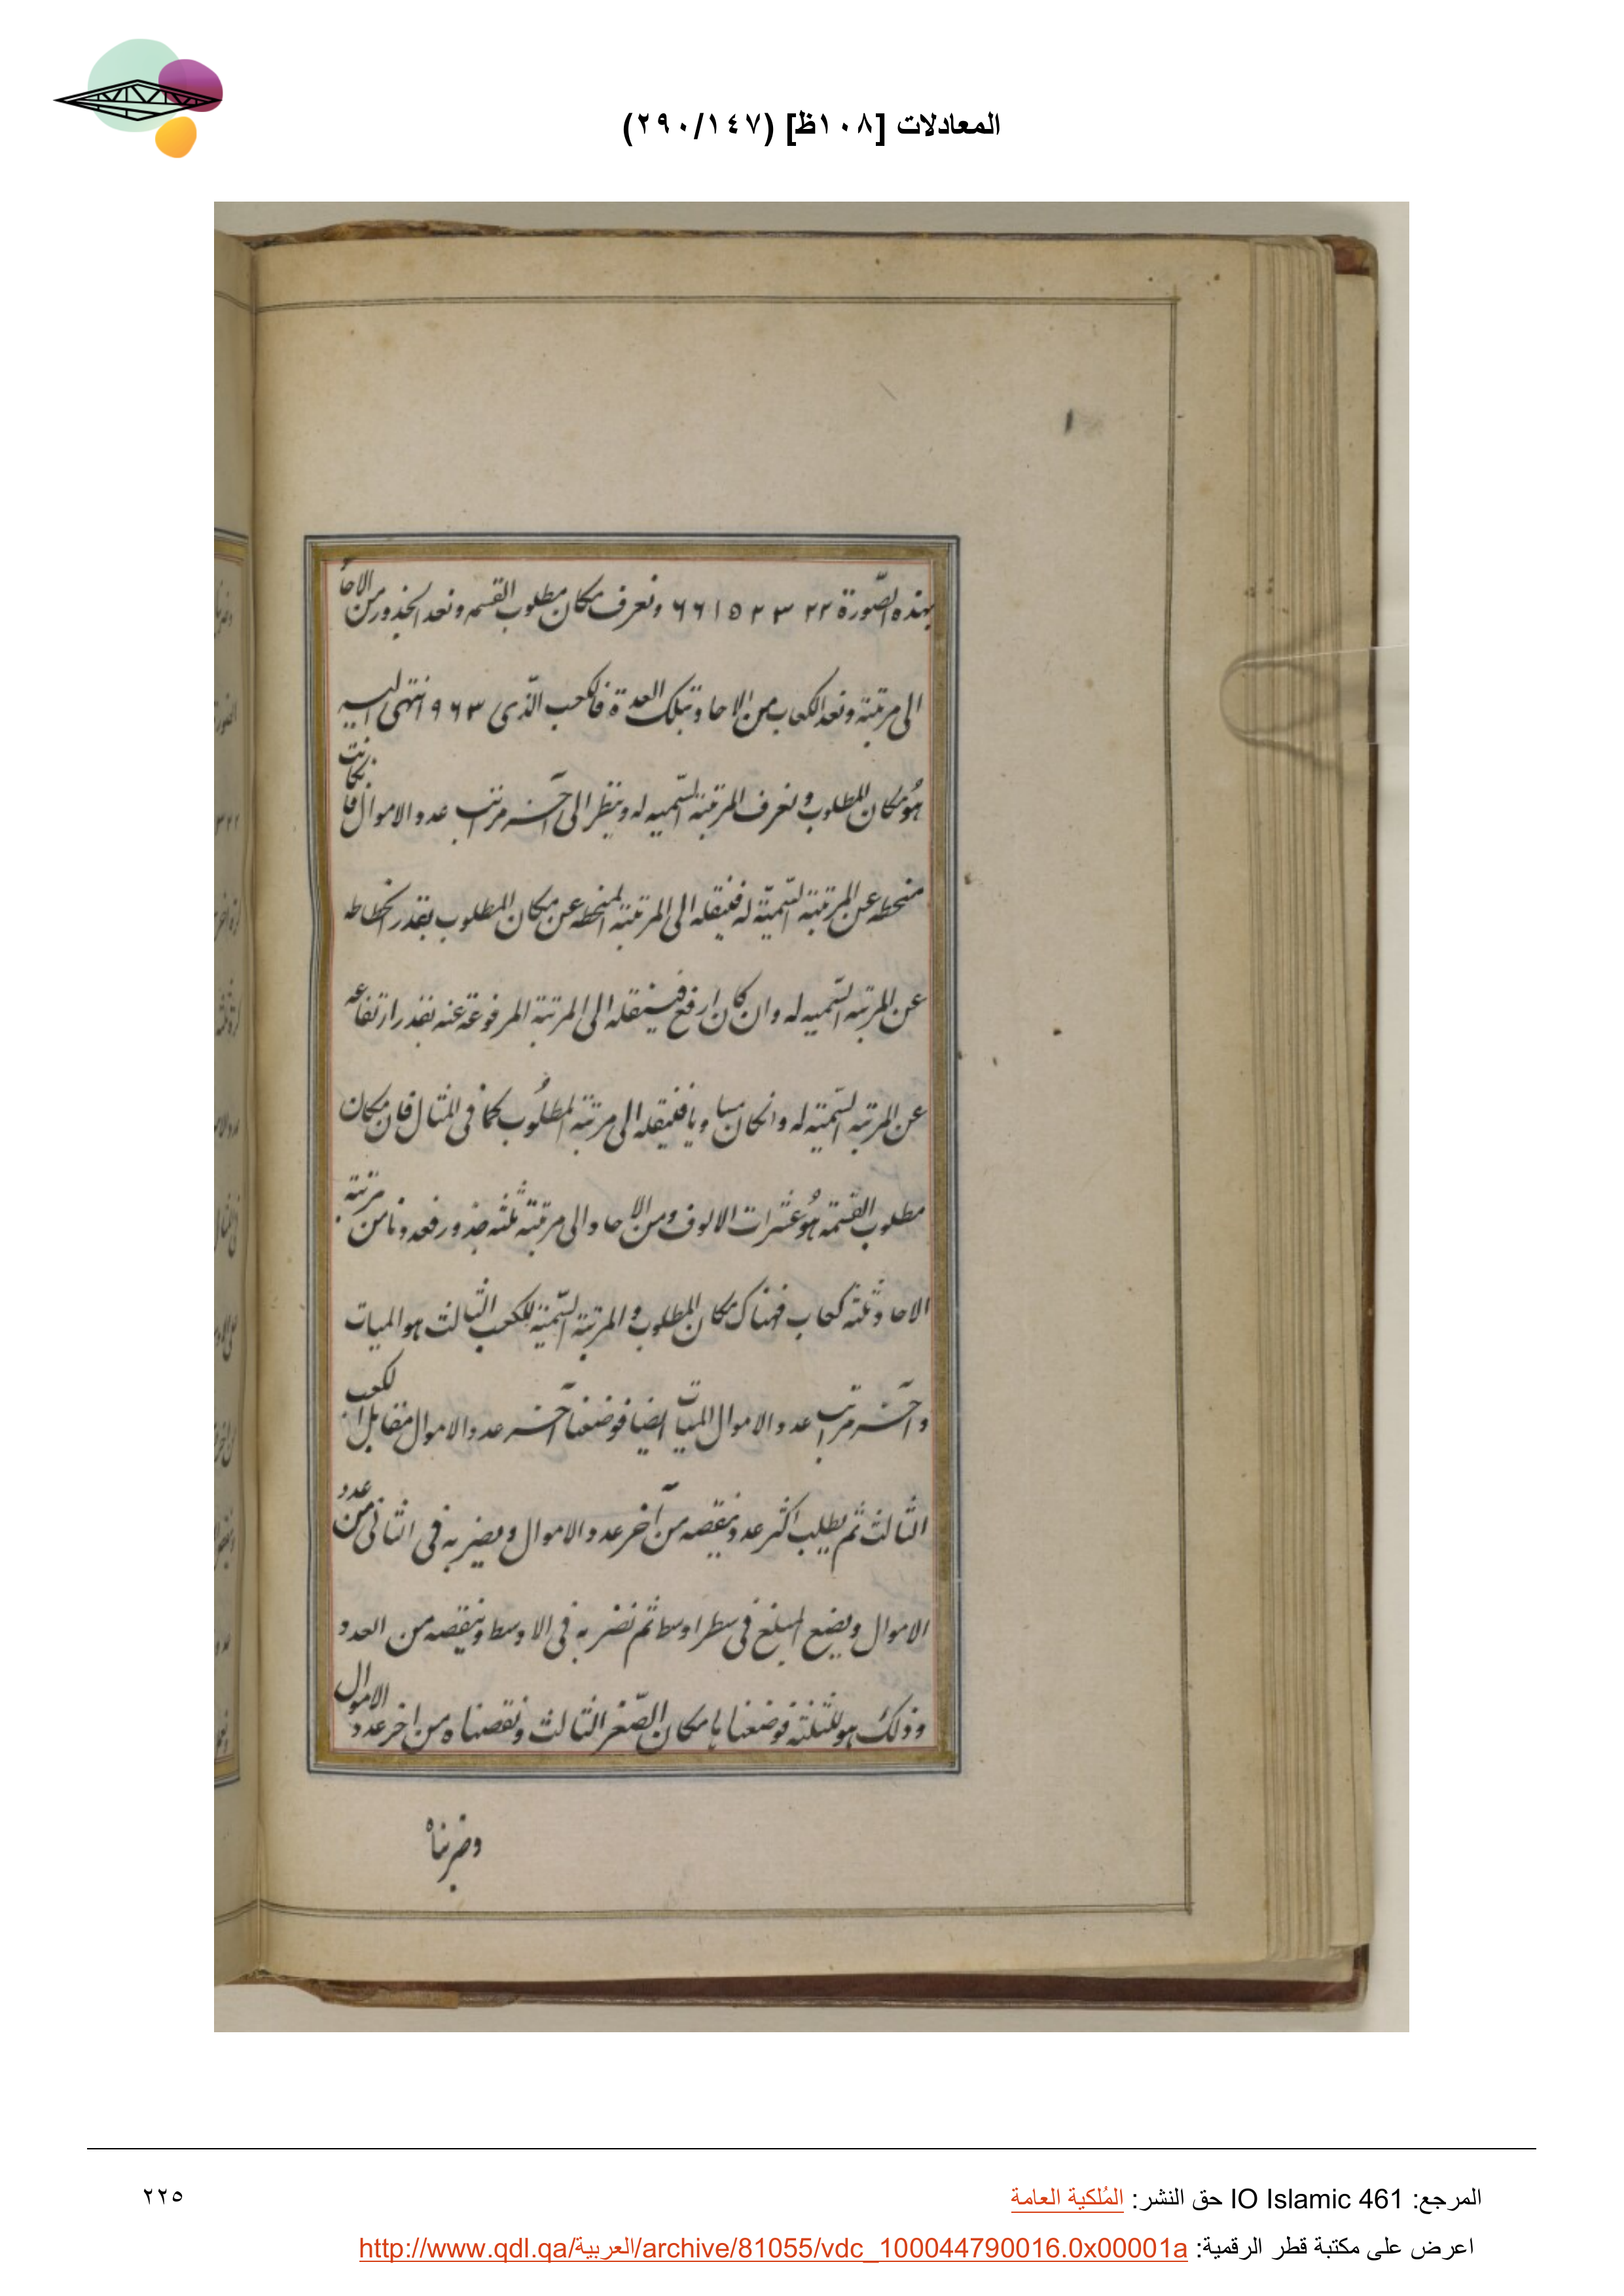 المعادلات [١٠٨ظ] (٢٩٠/١٤٧)
بهذه الصّورة ٢٢ ٣ ٢ ٣ ٥ ١ ٦ ٦ ونعرف مكان مطلوب القسمه ونعد الجذور من الاحاد
الى مرتبته ونعد الكعاب من الاحاد وتبلك العدة فالكعب الّذى ٩٦٣ انتهى اليه
هُو مكان المطلوب ونعرف المرتبة السّميه له وينظر الى آخر مراتب عدد الاموال فانكانت
منحطه عن المرتبة السّميّة له فينقله الى المرتبة المنحطه عن مكان المطلوب بقدر انحطاطه
عن المرتبه السّميه له وان كان ارفع فينقله الى المرتبة المرفوعة عنه بقدر ارتفاعه
عن المرتبه السّميّه له وانكان مساويا فينقله الى مرتبة المطلُوب كما فى المثال فان مكان
مطلوب القسمة هُو عشرات الالوف ومن الاحاد الى مرتبته ثلثه جذور فعددنا من مرتبة
الاحاد ثلثة كعاب فهناك مكان المطلوب والمرتبة السّميّة للكعب الثالث هو الميات
وآخر مراتب عدد الاموال الميات ايضا فوضعنا آخر عدد الاموال مقابل الكعب
الثالث ثم يطلب اكثر عدد ينقصه من آخر عدد الاموال ويضربه فى الثانى من عدد
الاموال ويضع المبلغ فى سطر اوسط ثم نضربه فى الاوسط وينقصه من العدد
وذلك هو الثلثة فوضعناها مكان الصّفر الثالث ونقصناه من اخر عدد الاموال
وضربناه
المرجع: IO Islamic 461 حق النشر: المُلكية العامة
٢٢٥
اعرض على مكتبة قطر الرقمية: http://www.qdl.qa/العربية/archive/81055/vdc_100044790016.0x00001a